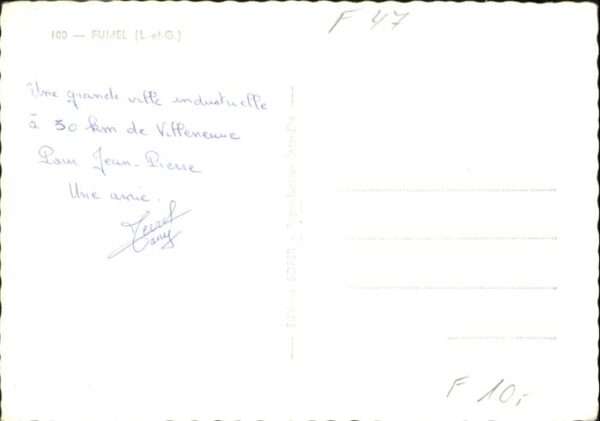 100 — FUMEL (L.-et-G.)
F 47
Une grande ville industrielle
à 30 km de Villeneuve
Pour Jean-Pierre
Une amie.
F 10,-